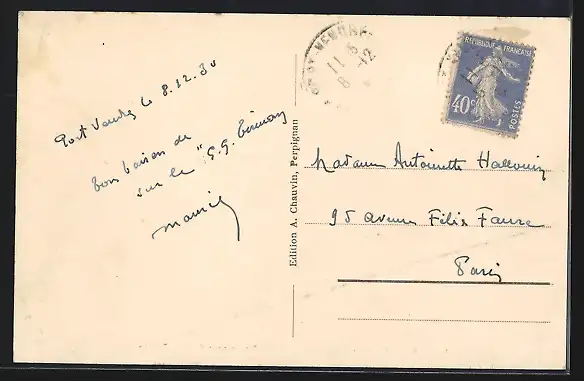 Port Vendres le 8.12.30
bon baiser de
sur le "G.G.
Maurice
Edition A. Chauvin, Perpignan
PORT-VENDRES
11 5
8 -12
REPUBLIQUE FRANÇAISE
40c
POSTES
Madame Antoinette Hallouin
95 avenue Félix Faure
Paris